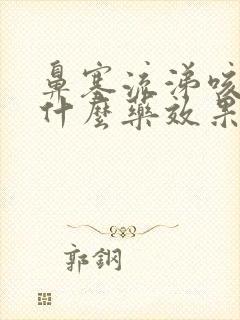 鼻塞流涕咳
什麼藥效果
郭鋼